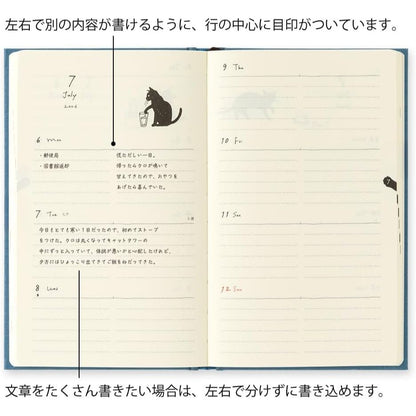 左右で別の内容が書けるように、行の中心に目印がついています。
7
July
6 Mon
・郵便局
・図書館返却
慌ただしい一日。
帰ったらクロが鳴いて
甘えてきたので、おやつを
あげたら喜んでいた。
7 Tue
今日もとても寒い1日だったので、初めてストーブ
をつけた。クロは丸くなってキャットタワーの
中にずっと入っていて、体調が悪いかと心配したけれど、
夕方にはひょっこり出てきてご飯をねだってきた。
8 Wed
9 Thu
10 Fri
11 Sat
12 Sun
7
文章をたくさん書きたい場合は、左右で分けずに書き込めます。